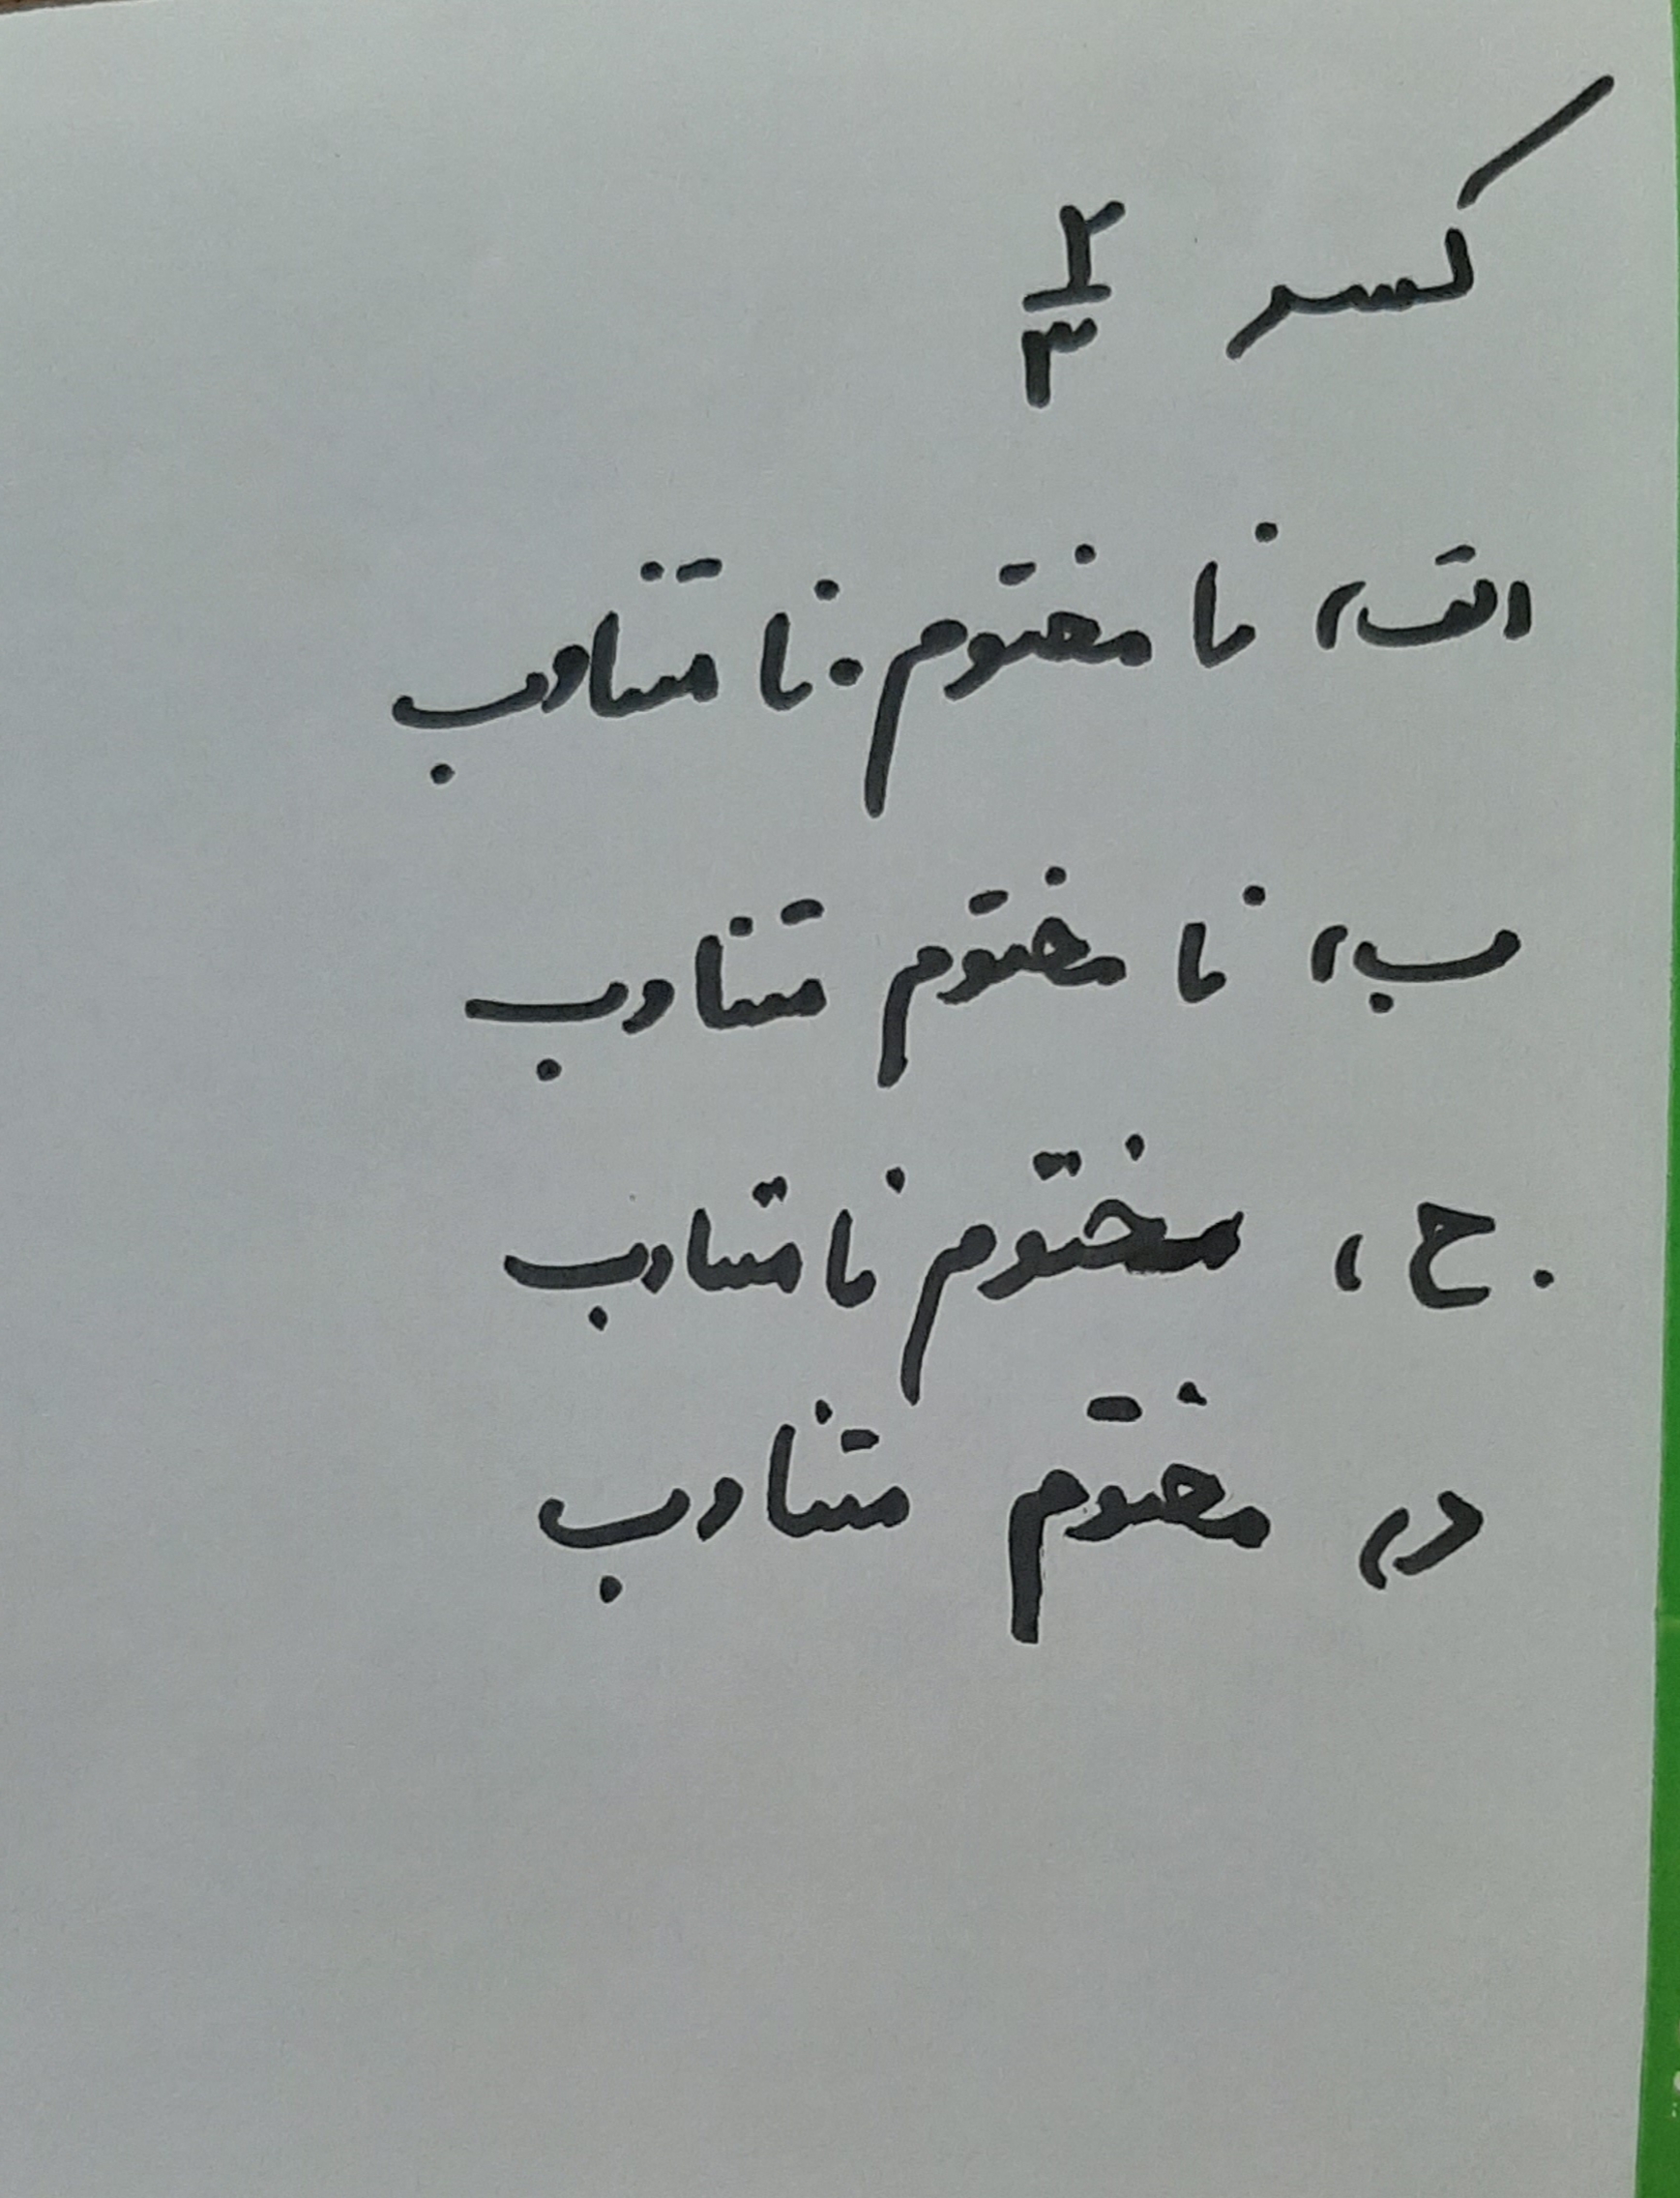 کسر ۲/۳
الف، نا مختوم نا متناوب
ب، نا مختوم متناوب
ج، مختوم نا متناوب
د، مختوم متناوب